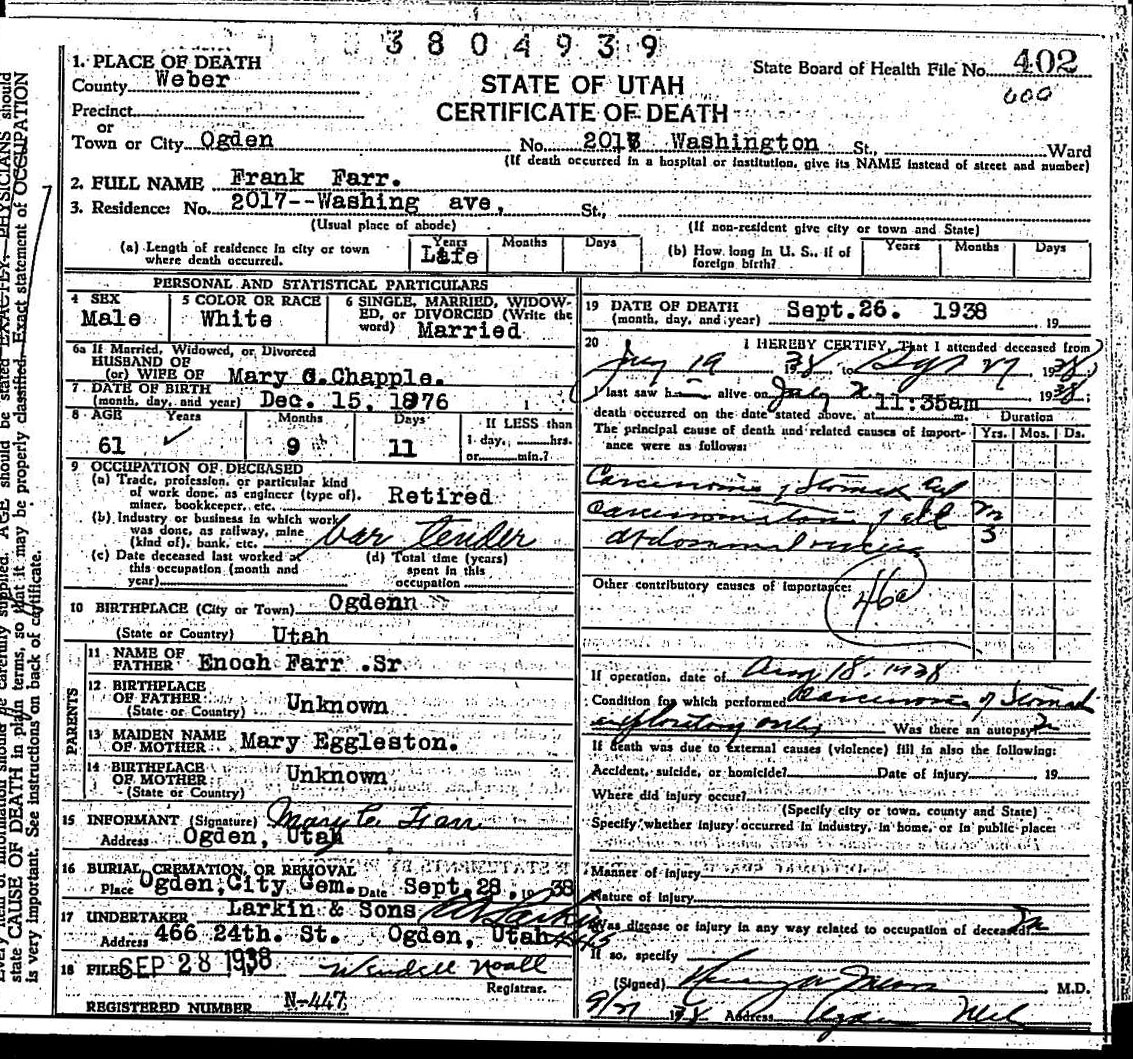 3804939
1. PLACE OF DEATH
County Weber
STATE OF UTAH
CERTIFICATE OF DEATH
State Board of Health File No. 402
600
Precinct
or
Town or City Ogden No. 2017 Washington St., Ward
(If death occurred in a hospital or institution, give its NAME instead of street and number)
2. FULL NAME Frank Farr.
3. Residence: No. 2017--Washing ave, St.,
(Usual place of abode) (If non-resident give city or town and State)
(a) Length of residence in city or town where death occurred. Years Life Months Days
(b) How long in U. S., if of foreign birth? Years Months Days
PERSONAL AND STATISTICAL PARTICULARS
4 SEX Male
5 COLOR OR RACE White
6 SINGLE, MARRIED, WIDOW-
ED, or DIVORCED (Write the
word) Married
6a If Married, Widowed, or Divorced
HUSBAND OF
(or) WIFE OF Mary C. Chapple.
7 DATE OF BIRTH
(month, day, and year) Dec. 15, 1876
8 AGE Years Months Days If LESS than
61 9 11 1 day, hrs.
or min.?
9 OCCUPATION OF DECEASED
(a) Trade, profession, or particular kind
of work done, as engineer (type of), Retired
miner, bookkeeper, etc.
(b) Industry or business in which work
was done, as railway, mine bar tender
(kind of), bank, etc.
(c) Date deceased last worked at
this occupation (month and
year)
(d) Total time (years)
spent in this
occupation
10 BIRTHPLACE (City or Town) Ogdenn
(State or Country) Utah
PARENTS
11 NAME OF
FATHER Enoch Farr .Sr
12 BIRTHPLACE
OF FATHER Unknown
(State or Country)
13 MAIDEN NAME
OF MOTHER Mary Eggleston.
14 BIRTHPLACE
OF MOTHER Unknown
(State or Country)
15 INFORMANT (Signature) Mary C. Farr
Address Ogden, Utah
16 BURIAL, CREMATION, OR REMOVAL
Place Ogden,City Cem. Date Sept.28. 1938
17 UNDERTAKER Larkin & Sons
Address 466 24th. St. Ogden, Utah
18 FILED SEP 28 1938 Wendell Noall
Registrar.
REGISTERED NUMBER N-447
19 DATE OF DEATH
(month, day, and year) Sept.26. 1938 19
20 I HEREBY CERTIFY, That I attended deceased from
19 1938 to 27 1938
I last saw h alive on July 1938
death occurred on the date stated above, at 11:35am m. Duration
The principal cause of death and related causes of import-
ance were as follows: Yrs. Mos. Ds.
Carcinoma of Stomach
Carcinomatosis of all
abdominal
3
Other contributory causes of importance:
46a
If operation, date of Aug 18. 1938
Condition for which performed Carcinoma of Stomach
exploratory only Was there an autopsy?
If death was due to external causes (violence) fill in also the following:
Accident, suicide, or homicide? Date of injury , 19
Where did injury occur?
(Specify city or town, county and State)
Specify whether injury occurred in industry, in home, or in public place:
Manner of injury
Nature of injury
Was disease or injury in any way related to occupation of deceased? No
If so, specify
(Signed) M.D.
9/27 1938 Address Ogden Utah
state CAUSE OF DEATH in plain terms, so that it may be properly classified. Exact statement of OCCUPATION
is very important. See instructions on back of certificate.